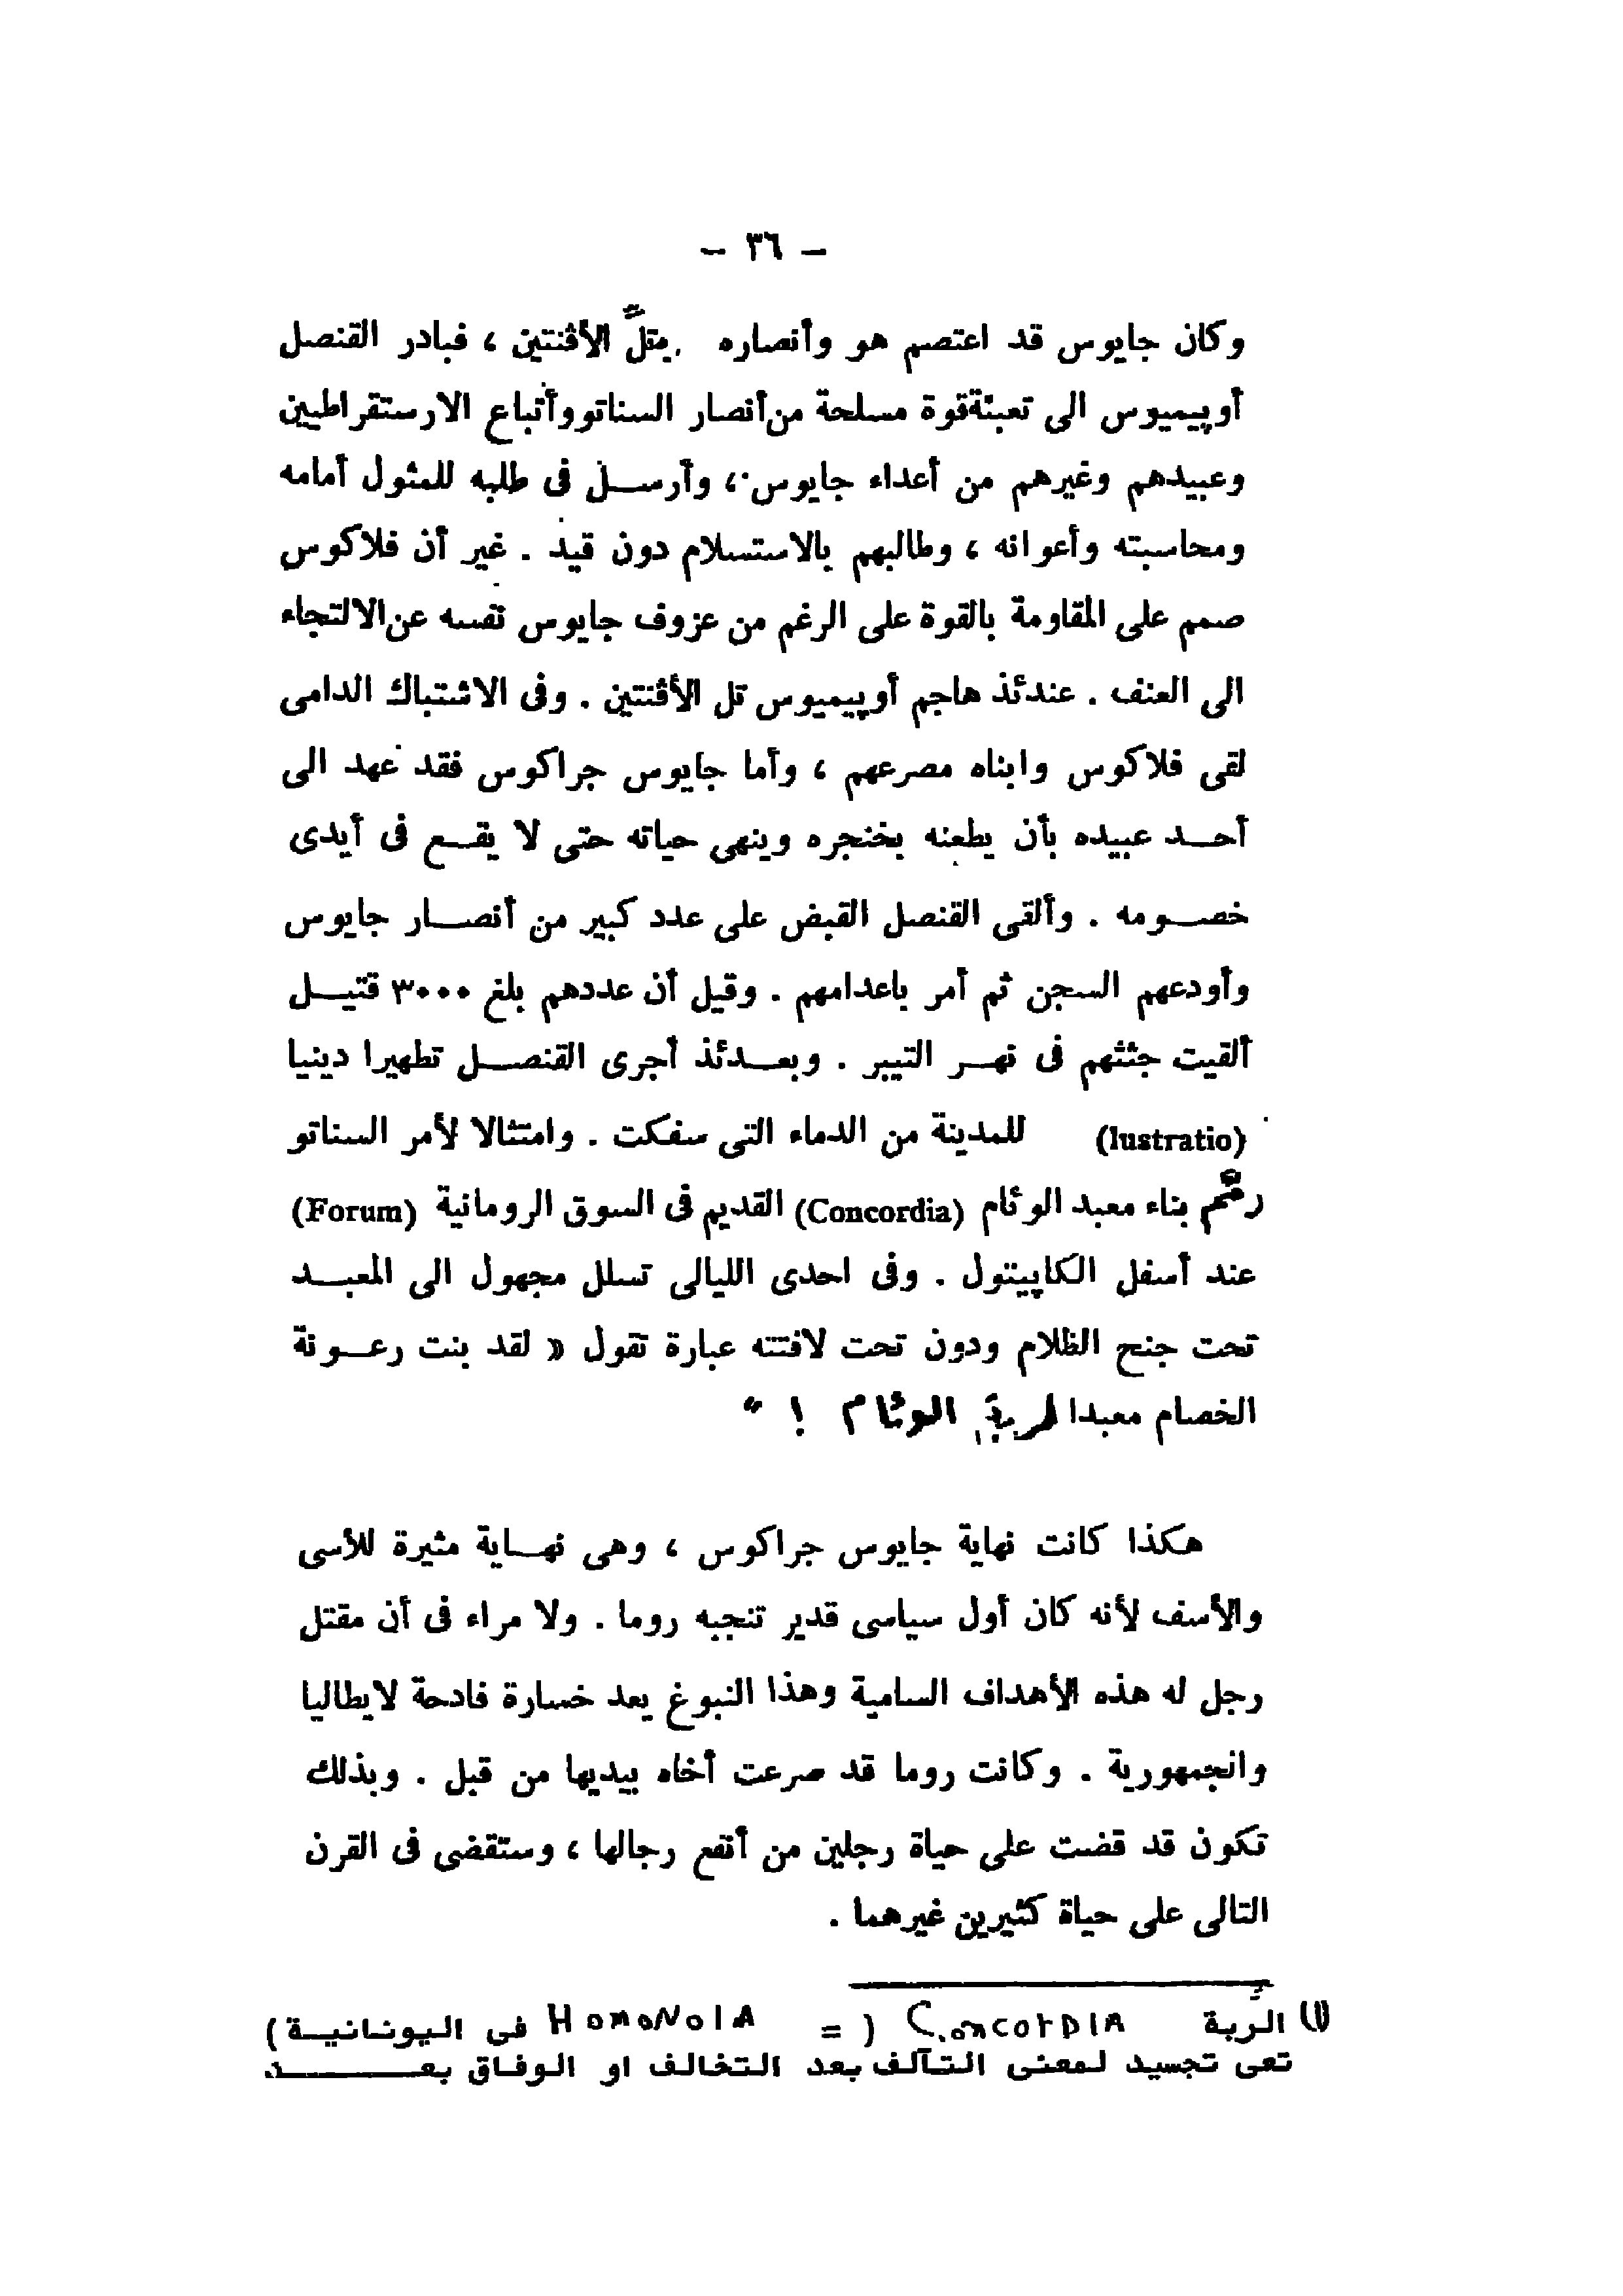 — ٣٦ —
وكان جايوس قد اعتصم هو وأنصاره بتلّ الأڤنتين ، فبادر القنصل
أوپيميوس الى تعبئة قوة مسلحة من أنصار السناتو وأتباع الارستقراطيين
وعبيدهم وغيرهم من أعداء جايوس ، وأرســل فى طلبه للمثول أمامه
ومحاسبته وأعوانه ، وطالبهم بالاستسلام دون قيد . غير أن فلاكوس
صمم على المقاومة بالقوة على الرغم من عزوف جايوس نفسه عن الالتجاء
الى العنف . عندئذ هاجم أوپيميوس تل الأڤنتين . وفى الاشتباك الدامى
لقى فلاكوس وابناه مصرعهم ، وأما جايوس جراكوس فقد عهد الى
أحــد عبيده بأن يطعنه بخنجره وينهى حياته حتى لا يقــع فى أيدى
خصــومه . وألقى القنصل القبض على عدد كبير من أنصــار جايوس
وأودعهم السجن ثم أمر باعدامهم . وقيل أن عددهم بلغ ٣٠٠٠ قتيــل
ألقيت جثثهم فى نهــر التيبر . وبعــدئذ أجرى القنصــل تطهيرا دينيا
(lustratio) للمدينة من الدماء التى سفكت . وامتثالا لأمر السناتو
رمَّم بناء معبد الوئام (Concordia) القديم فى السوق الرومانية (Forum)
عند أسفل الكاپيتول . وفى احدى الليالى تسلل مجهول الى المعبــد
تحت جنح الظلام ودون تحت لافتته عبارة تقول « لقد بنت رعــونة
الخصام معبدا لربة الوئام ! "
هكذا كانت نهاية جايوس جراكوس ، وهى نهــاية مثيرة للأسى
والأسف لأنه كان أول سياسى قدير تنجبه روما . ولا مراء فى أن مقتل
رجل له هذه الأهداف السامية وهذا النبوغ يعد خسارة فادحة لايطاليا
والجمهورية . وكانت روما قد صرعت أخاه بيديها من قبل . وبذلك
تكون قد قضت على حياة رجلين من أنفع رجالها ، وستقضى فى القرن
التالى على حياة كثيرين غيرهما .
(١) الربَّة Concordia ( = HomoNoia فى اليونانيــة )
تعى تجسيد لمعنى التآلف بعد التخالف او الوفاق بعــــــد